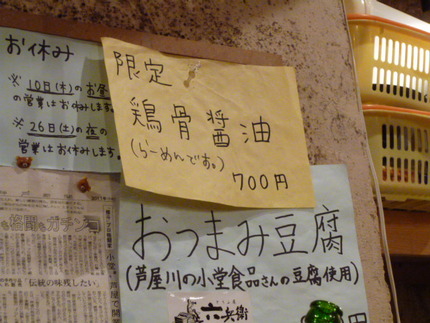 お休み
※10日(木)のお昼
の営業はお休みします。
※26日(土)の夜の
営業はお休みします。
限定
鶏骨醤油
(らーめんです。)
700円
おつまみ豆腐
(芦屋川の小堂食品さんの豆腐使用)
六兵衛
円
格闘もガチンコ
「伝統の味残したい」